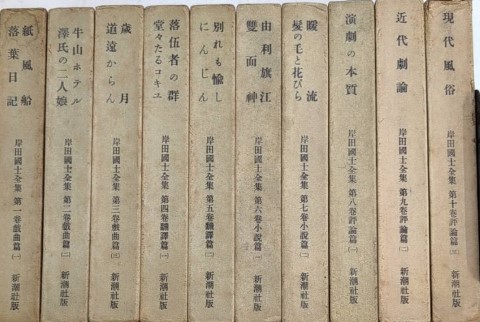 紙風船
落葉日記
岸田國士全集 第一卷戲曲篇(一) 新潮社版
牛山ホテル
澤氏の二人娘
岸田國士全集 第二卷戲曲篇(二) 新潮社版
歳月
道遠からん
岸田國士全集 第三卷戲曲篇(三) 新潮社版
落伍者の群
堂々たるコキユ
岸田國士全集 第四卷飜譯篇(一) 新潮社版
別れも愉し
にんじん
岸田國士全集 第五卷飜譯篇(二) 新潮社版
由利旗江
雙面神
岸田國士全集 第六卷小說篇(一) 新潮社版
暖流
髪の毛と花びら
岸田國士全集 第七卷小說篇(二) 新潮社版
演劇の本質
岸田國士全集 第八卷評論篇(一) 新潮社版
近代劇論
岸田國士全集 第九卷評論篇(二) 新潮社版
現代風俗
岸田國士全集 第十卷評論篇(三) 新潮社版